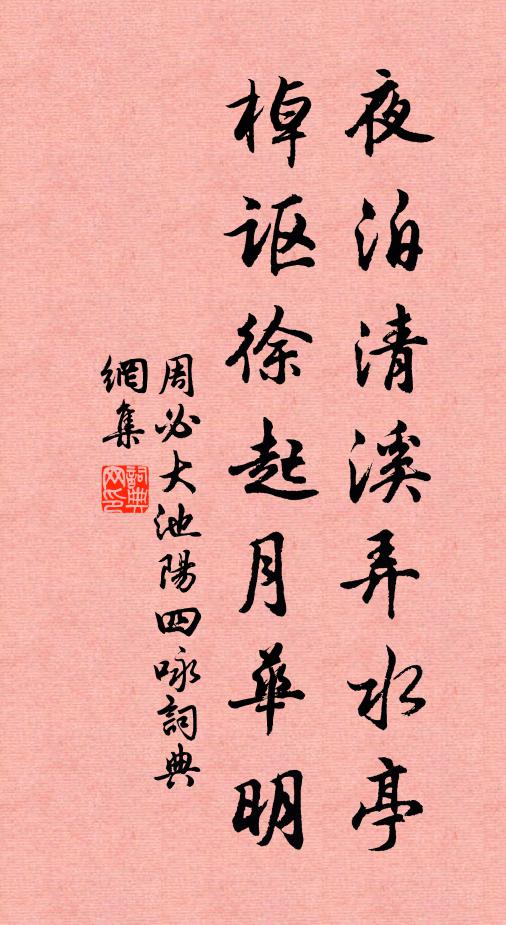 夜泊清溪弄水亭
棹讴徐起月华明
周必大池陽四咏詞典
網集
詞典
网印